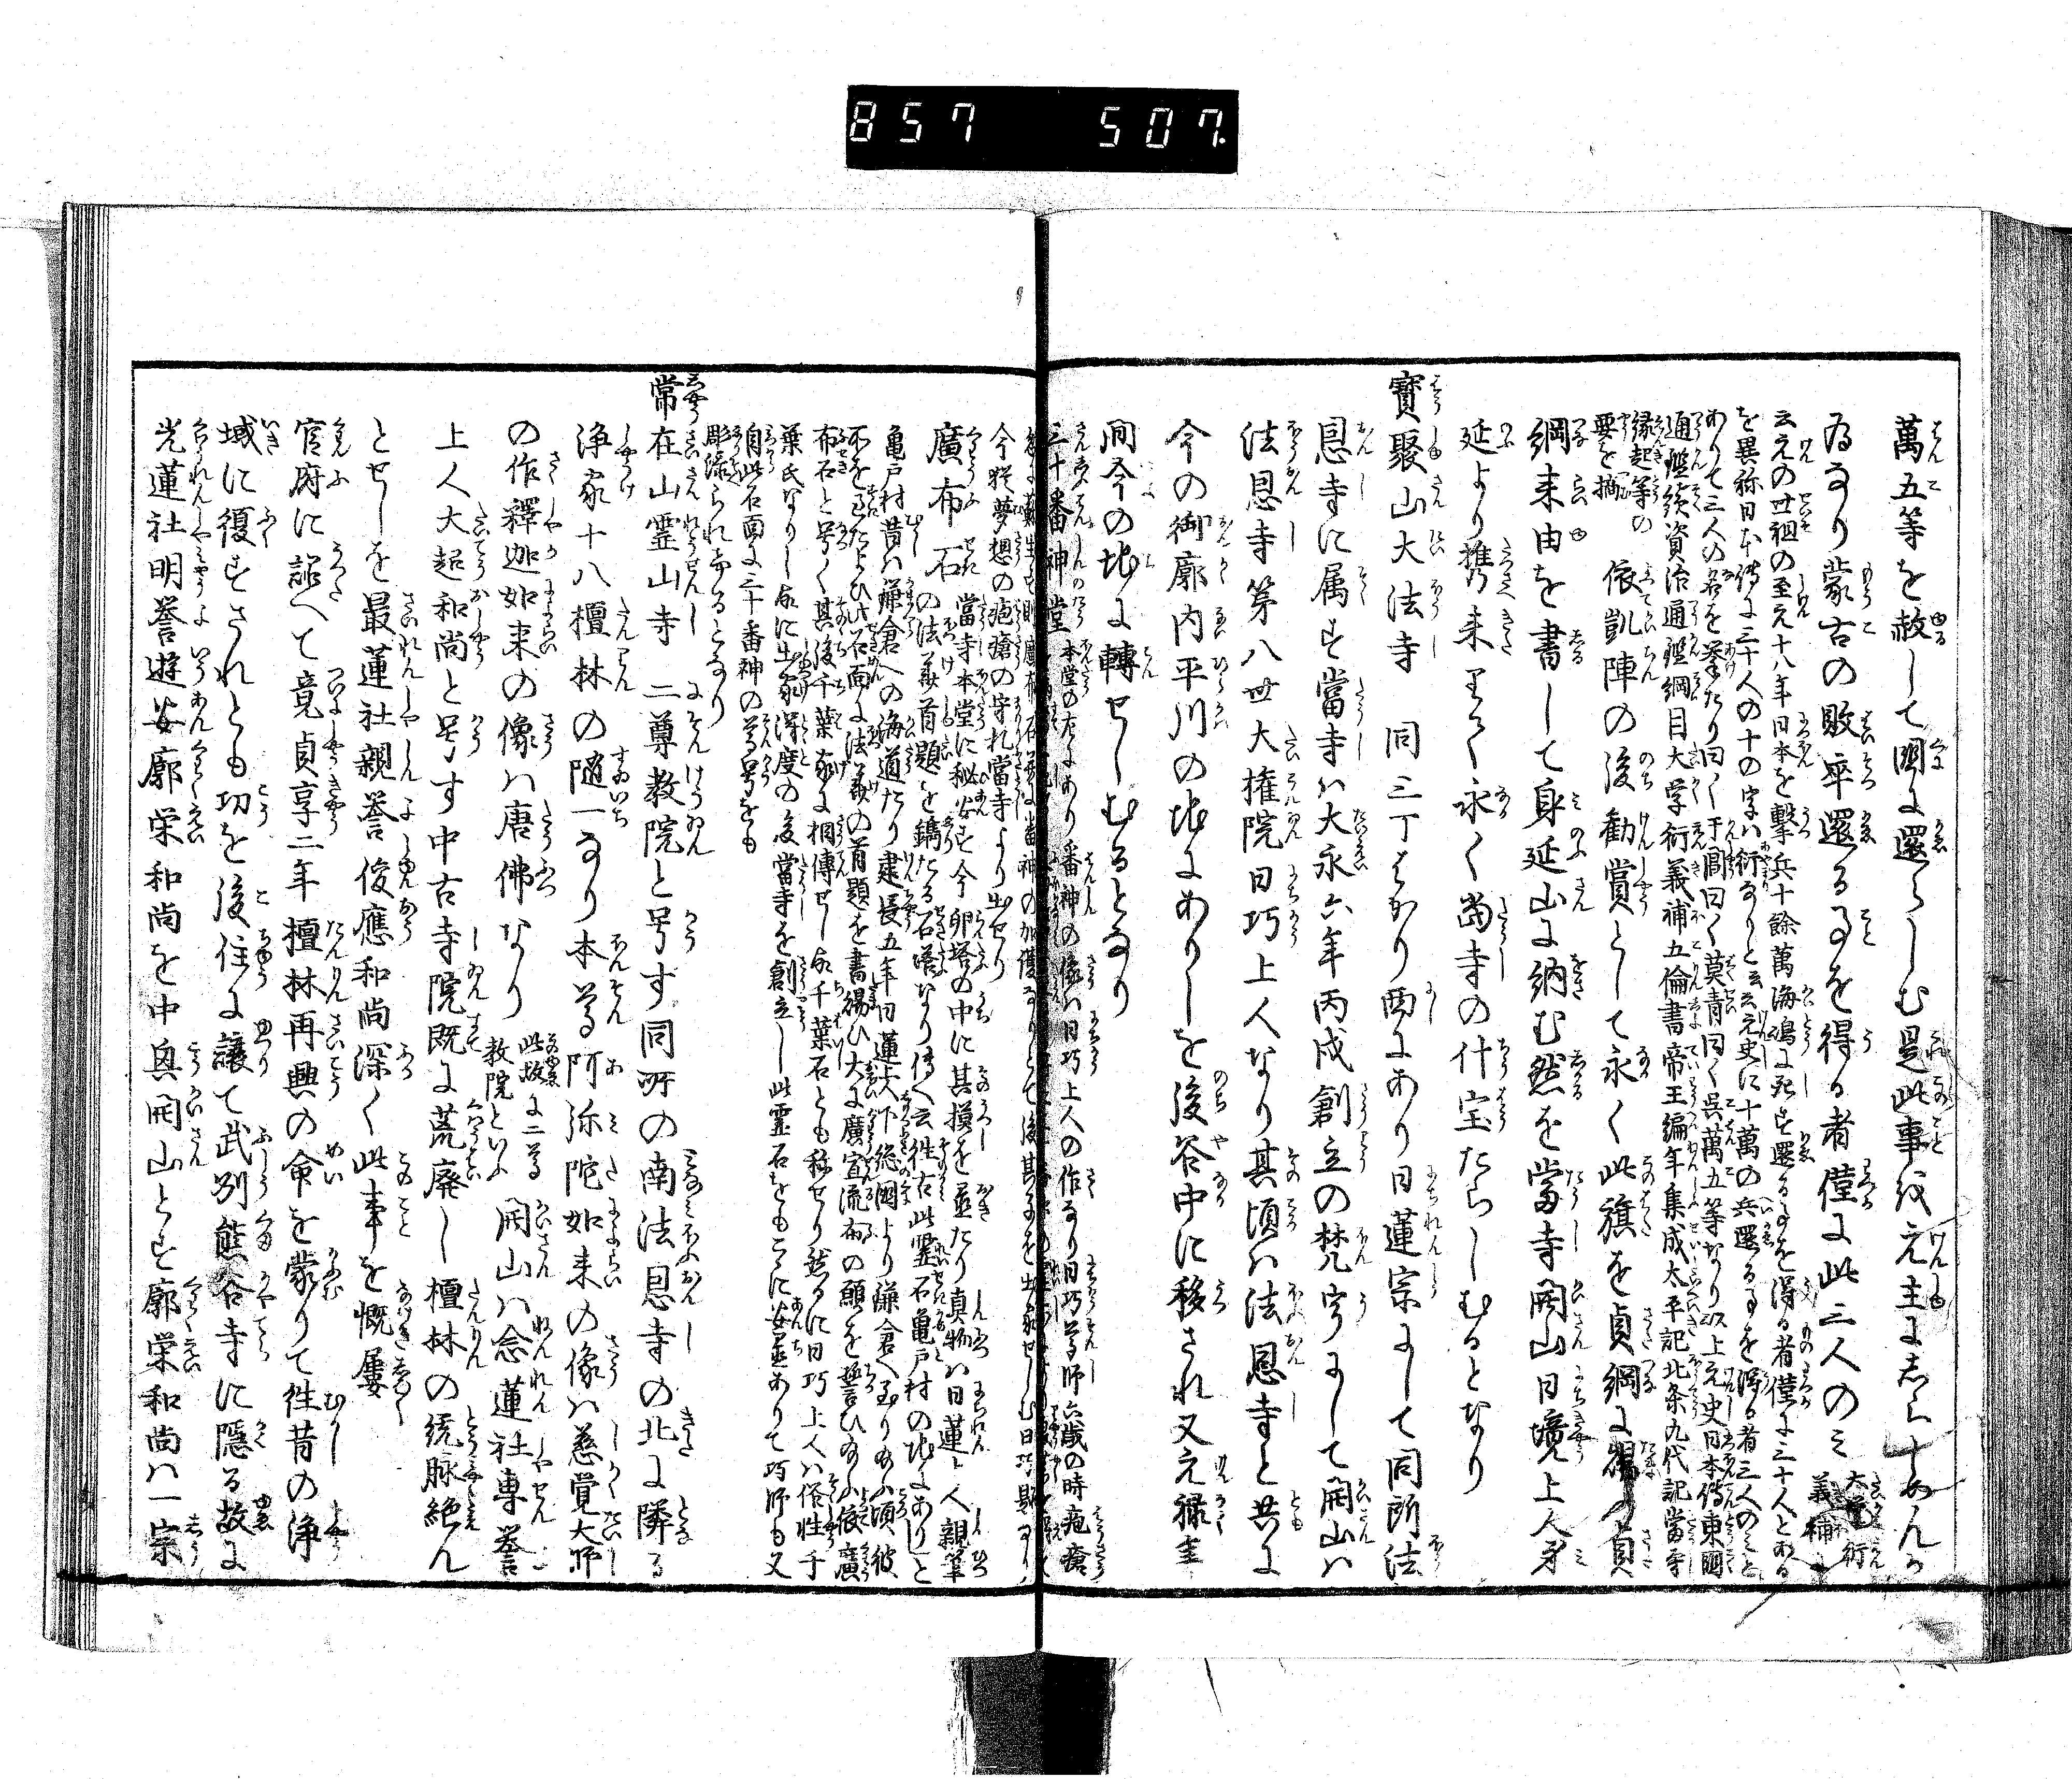 857 507.
萬五等を赦して國に還らしむ是此事汶元主にしらすめんか
為なり蒙古の敗卒還る事を得る者僅に此三人のミ 大學衍義補に
云元の世祖の至元十八年日本を撃兵十餘萬海嶋に死す還る事を得る者僅に三十人とある
を異称日本傳に三十人の十の字ハ衍なりと云云元史に十萬の兵還る事を得る者三人のミと
ありて三人の名を挙たり曰く于閶曰く莫青曰く呉萬五等なり以上元史日本傳東國
通鑑続資治通鑑綱目大学衍義補五倫書帝王編年集成太平記北条九代記當寺
縁起等の要を摘 依凱陣の後勧賞として永く此旗を貞綱に賜ふ貞
綱来由を書して身延山に納む然を當寺開山日境上人身
延より携来りて永く當寺の什宝たらしむるとなり
寳聚山大法寺 同三丁はかり西にあり日蓮宗にして同所法
恩寺に属す當寺ハ大永六年丙戌創立の梵宇にして開山ハ
法恩寺第八世大権院日巧上人なり其頃ハ法恩寺と共に
今の御廓内平川の地にありしを後谷中に移され又元禄年
間今の地に轉せしむるとなり
三十番神堂 本堂の左にあり番神の像ハ日巧上人の作なり日巧尊師六歳の時疱瘡
今授夢想の疱瘡の守札當寺より出せり
廣布石 當寺本堂に秘安す今卵塔の中に其模を並たり真物ハ日蓮上人親筆
の法華首題を鐫たる石塔なり傳へ云往古此霊石亀戸村の地にありしと
亀戸村昔ハ鎌倉への海道たり建長五年日蓮大下総國より鎌倉へ至りたまふ頃彼
布石と号く其後千葉家に相傳せし故千葉石とも称せり然るに日巧上人ハ俗性千
葉氏なりし故に出家得度の後當寺を創立し此霊石をもこゝに安置ありて巧師も又
自此石面に三十番神の尊号をも
彫添られけるとなり
常在山霊山寺 二尊教院と号す同所の南法恩寺の北に隣る
浄家十八檀林の随一なり本尊阿弥陀如来の像ハ慈覚大師
の作釋迦如来の像ハ唐佛なり 此故に二尊教院といふ 開山ハ念蓮社専誉
上人大超和尚と号す中古寺院既に荒廃し檀林の統脉絶ん
とせしを最蓮社親誉俊應和尚深く此事を慨屡
官府に訟へて竟貞享二年檀林再興の命を蒙りて徃昔の浄
域に復すされとも功を後住に譲て武列熊谷寺に隠る故に
光蓮社明誉遊安廓栄和尚を中興開山とす廓栄和尚ハ一宗